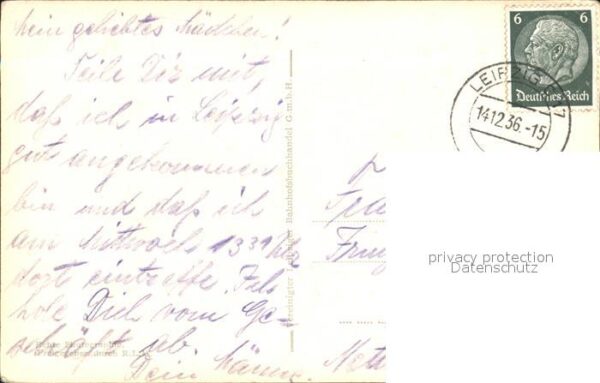 Mein geliebtes Mädchen!
Teile Dir mit,
daß ich in Leipzig
gut angekommen
bin und daß ich
am Mittwoch 13 39 Uhr
dort eintreffe. Ich
hole Dich vom Ge-
schäft ab.
Dein
6 6
Deutsches Reich
LEIPZIG
14.12.36.-15
Leipziger Bahnhofsbuchhandel G.m.b.H.
Echte Photographie
privacy protection
Datenschutz